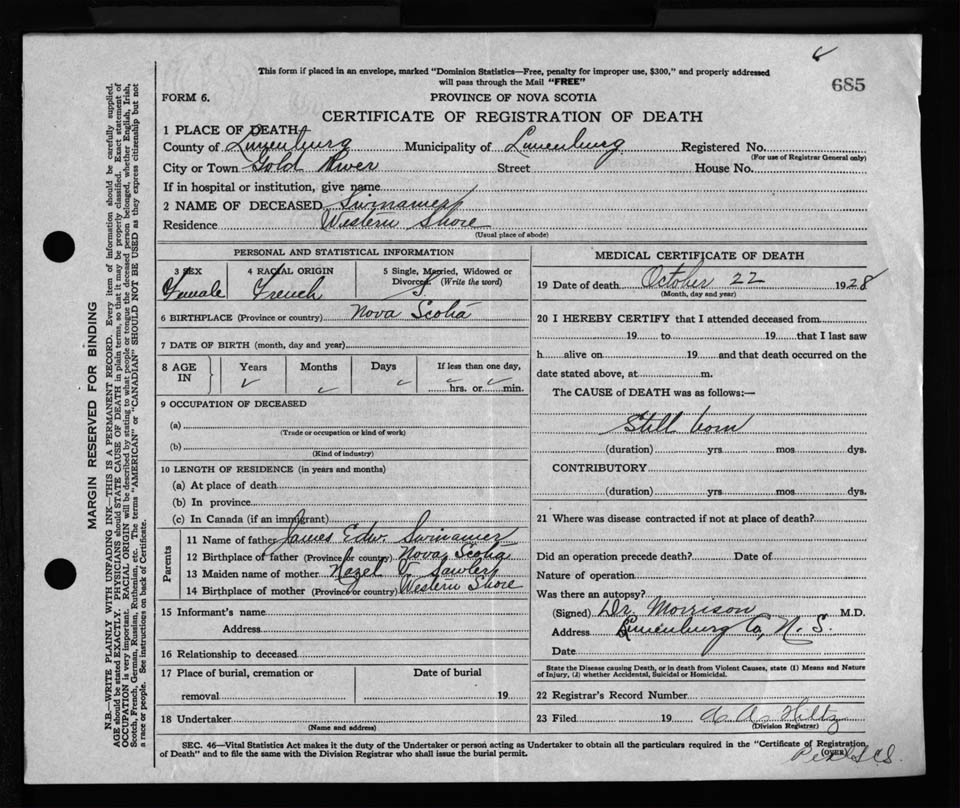 This form if placed in an envelope, marked "Dominion Statistics—Free, penalty for improper use, $300," and properly addressed
will pass through the Mail "FREE"
685
FORM 6.
PROVINCE OF NOVA SCOTIA
CERTIFICATE OF REGISTRATION OF DEATH
1 PLACE OF DEATH
County of Lunenburg Municipality of Lunenburg Registered No.
(For use of Registrar General only)
City or Town Gold River Street House No.
If in hospital or institution, give name
2 NAME OF DECEASED Swinamer
Residence Western Shore
(Usual place of abode)
PERSONAL AND STATISTICAL INFORMATION
3 SEX 4 RACIAL ORIGIN 5 Single, Married, Widowed or
Divorced. (Write the word)
Female French S.
6 BIRTHPLACE (Province or country) Nova Scotia
7 DATE OF BIRTH (month, day and year)
8 AGE IN Years Months Days If less than one day,
hrs. or min.
9 OCCUPATION OF DECEASED
(a)
(Trade or occupation or kind of work)
(b)
(Kind of industry)
10 LENGTH OF RESIDENCE (in years and months)
(a) At place of death
(b) In province
(c) In Canada (if an immigrant)
Parents
11 Name of father James Edw. Swinamer
12 Birthplace of father (Province or country) Nova Scotia
13 Maiden name of mother Hazel V. Sawler
14 Birthplace of mother (Province or country) Western Shore
15 Informant's name
Address
16 Relationship to deceased
17 Place of burial, cremation or Date of burial
removal 19
18 Undertaker
(Name and address)
MEDICAL CERTIFICATE OF DEATH
19 Date of death October 22 1928
(Month, day and year)
20 I HEREBY CERTIFY that I attended deceased from
19 to 19 that I last saw
h alive on 19 and that death occurred on the
date stated above, at m.
The CAUSE of DEATH was as follows:—
Still born
(duration) yrs mos dys.
CONTRIBUTORY
(duration) yrs mos dys.
21 Where was disease contracted if not at place of death?
Did an operation precede death? Date of
Nature of operation
Was there an autopsy?
(Signed) Dr. Morrison M.D.
Address Lunenburg Co, N. S.
Date
State the Disease causing Death, or in death from Violent Causes, state (1) Means and Nature
of Injury, (2) whether Accidental, Suicidal or Homicidal.
22 Registrar's Record Number
23 Filed 19 A. A. Hiltz
(Division Registrar)
SEC. 46—Vital Statistics Act makes it the duty of the Undertaker or person acting as Undertaker to obtain all the particulars required in the "Certificate of Registration
of Death" and to file the same with the Division Registrar who shall issue the burial permit.
(OVER)
MARGIN RESERVED FOR BINDING
N.B.—WRITE PLAINLY WITH UNFADING INK—THIS IS A PERMANENT RECORD. Every item of information should be carefully supplied.
AGE should be stated EXACTLY. PHYSICIANS should STATE CAUSE OF DEATH in plain terms, so that it may be properly classified. Exact statement of
OCCUPATION is very important. RACIAL ORIGIN will be described by stating to what people or tongue the deceased person belonged, whether English, Irish,
Scotch, French, German, Russian, Ruthenian, etc. The terms "AMERICAN" or "CANADIAN" SHOULD NOT BE USED as they express citizenship but not
a race or people. See instructions on back of Certificate.